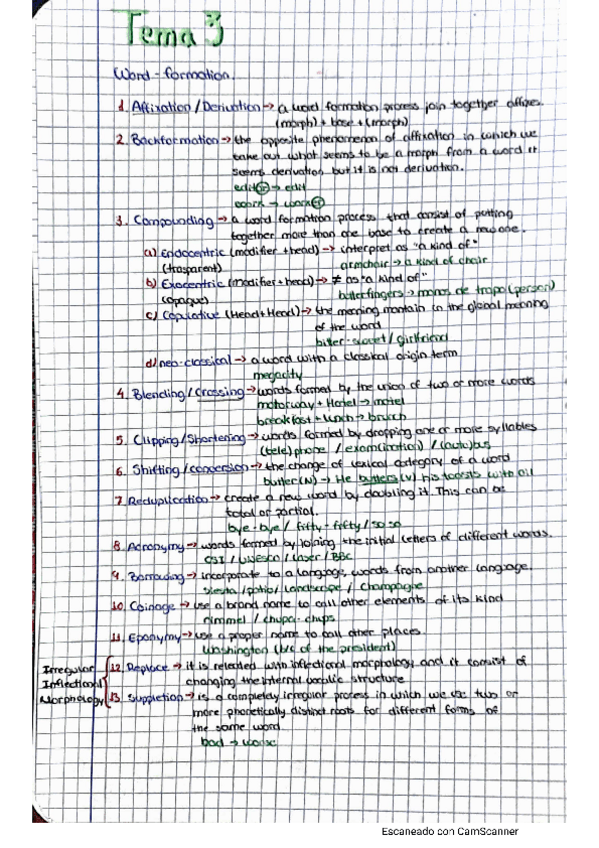 Tema 3
Word-formation.
1. Affixation / Derivation → a word formation process join together affixes.
(morph) + base + (morph)
2. Backformation → the opposite phenomenon of affixation in which we
take out what seems to be a morph from a word it
seems derivation but it is not derivation.
editor → edit
work → worker
3. Compounding → a word formation process that consist of putting
together more than one base to create a new one.
a) Endocentric (modifier + head) → interpret as "a kind of"
(trasparent) armchair → a kind of chair
b) Exocentric (modifier + head) → ≠ as "a kind of"
(opaque) butterfingers → manos de trapo (person)
c) Copulative (Head + Head) → the meaning mantain in the global meaning
of the word
bitter-sweet / girlfriend
d) neo-classical → a word with a classical origin term
megacity
4. Blending / Crossing → words formed by the union of two or more words
motorway + Hotel → motel
breakfast + lunch → brunch
5. Clipping / Shortening → words formed by dropping one or more syllables
(tele)phone / exam(ination) / (auto)bus
6. Shifting / conversion → the change of lexical category of a word
butter (N) → He butters (V) his toasts with oil
7. Reduplication → create a new word by doubling it. This can be
total or partial.
bye-bye / fifty-fifty / so so
8. Acronymy → words formed by joining the initial letters of different words.
CSI / Unesco / Laser / BBC
9. Borrowing → incorporate to a language, words from another language.
siesta / patio / landscape / Champagne
10. Coinage → use a brand name to call other elements of its kind
rimmel / chupa-chups
11. Eponymy → use a proper name to call other places.
Washington (b/c of the president)
Irregular Inflectional Morphology
12. Replace → it is related with inflectional morphology and it consist of
changing the internal vocalic structure
13. Suppletion → is a completely irregular process in which we use two or
more phonetically distinct roots for different forms of
the same word.
bad → worse
Escaneado con CamScanner